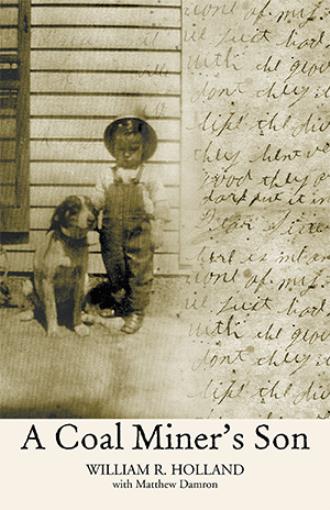 none of my
we just had
with the grou
dont they
like the di
they hent ve
good they a
dark but it in
Dear
here is me an
none of my
we just had
with the grou
dont they
like the di
A Coal Miner's Son
WILLIAM R. HOLLAND
with Matthew Damron